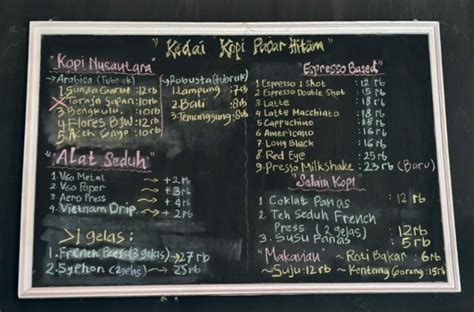 "Kedai Kopi Pacar Hitam"
"Kopi Nusantara"
Arabica (Tubruk)
1. Sunda Garut : 12rb
2. Toraja Sapan : 10rb
3. Bengkulu : 10rb
4. Flores BJW : 12rb
5. Aceh Gayo : 10rb
Robusta (tubruk)
1. Lampung : 7rb
2. Bali : 8rb
3. Temanggung : 8rb
"Alat Seduh"
1. V60 Metal → +2rb
2. V60 Paper → +3rb
3. Aero Press → +4rb
4. Vietnam Drip → +2rb
>1 gelas :
1. French Press (3 gelas) → 27rb
2. Syphon (2gelas) → 25rb
"Espresso Based"
1 Espresso 1 Shot : 12 rb
2 Espresso Double Shot : 15 rb
3 Latte : 18 rb
4 Latte Macchiato : 18 rb
5 Cappuchino : 18 rb
6 Americano : 16 rb
7 Long Black : 16 rb
8 Red Eye : 25 rb
9. Presso Milkshake : 23 rb (Baru)
"Selain Kopi"
1. Coklat Panas : 12 rb
2. Teh Seduh French Press (2 gelas) : 12 rb
3. Susu Panas : 5 rb
"Makaviau" ~ Roti Bakar : 6 rb
~ Suju : 12 rb ~ Kentang Goreng : 15rb